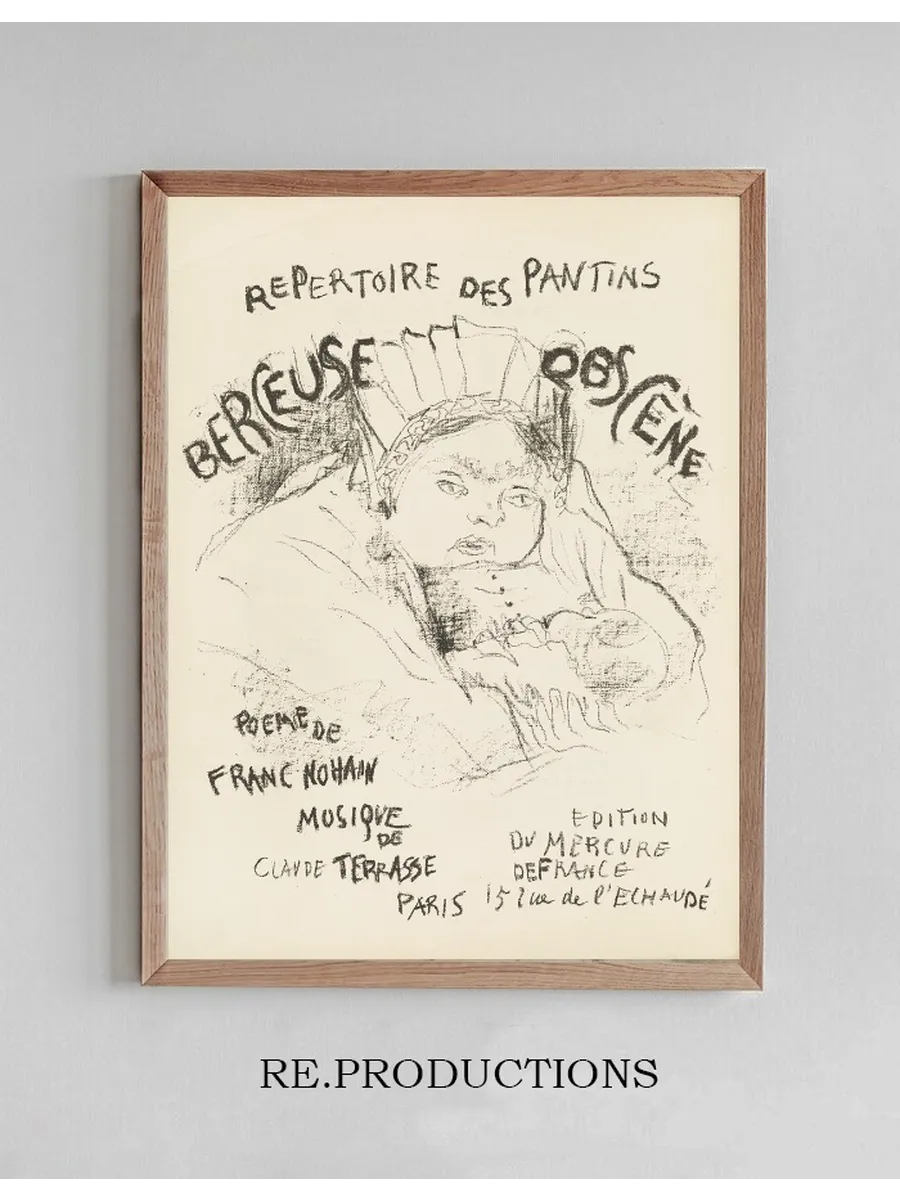 REPERTOIRE DES PANTINS
BERCEUSE OBSCÈNE
POEME DE
FRANC NOHAIN
MUSIQUE
DE
CLAUDE TERRASSE
EDITION
DU MERCURE
DE FRANCE
PARIS 15 rue de l'ECHAUDÉ
RE.PRODUCTIONS